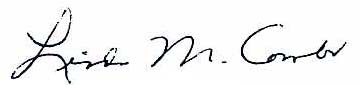 Linda M. Combs